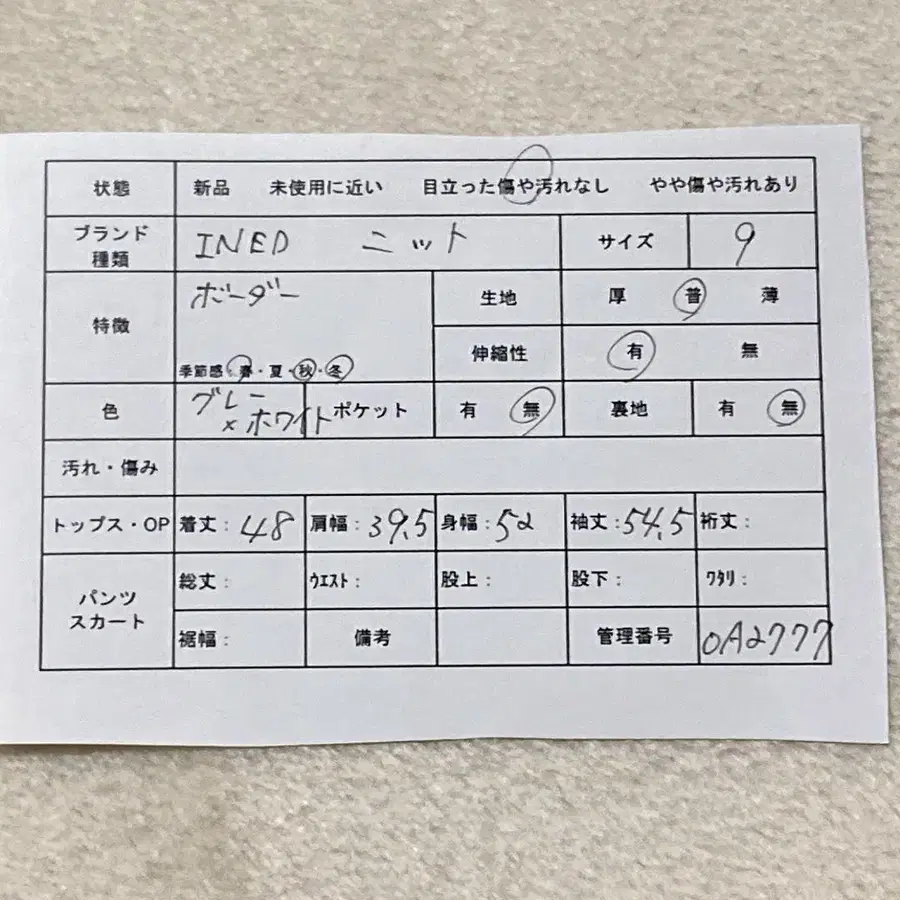 状態 新品 未使用に近い 目立った傷や汚れなし やや傷や汚れあり
ブランド
種類 INED ニット サイズ 9
特徴 ボーダー 生地 厚 普 薄
季節感:春・夏・秋・冬 伸縮性 有 無
色 グレー
×ホワイト ポケット 有 無 裏地 有 無
汚れ・傷み
トップス・OP 着丈: 48 肩幅: 39.5 身幅: 52 袖丈: 54.5 裄丈:
パンツ
スカート 総丈: ウエスト: 股上: 股下: ワタリ:
裾幅: 備考 管理番号 OA2777